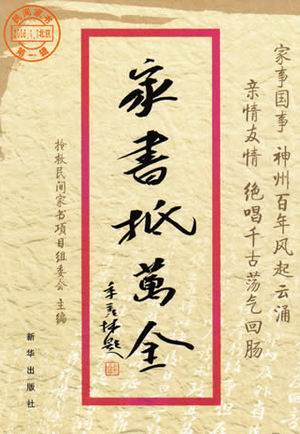 家事国事 神州百年风起云涌
亲情友情 绝唱千古荡气回肠
家書抵萬金
季羡林题
抢救民间家书项目组委会 主编
新华出版社
民间家书
第一辑